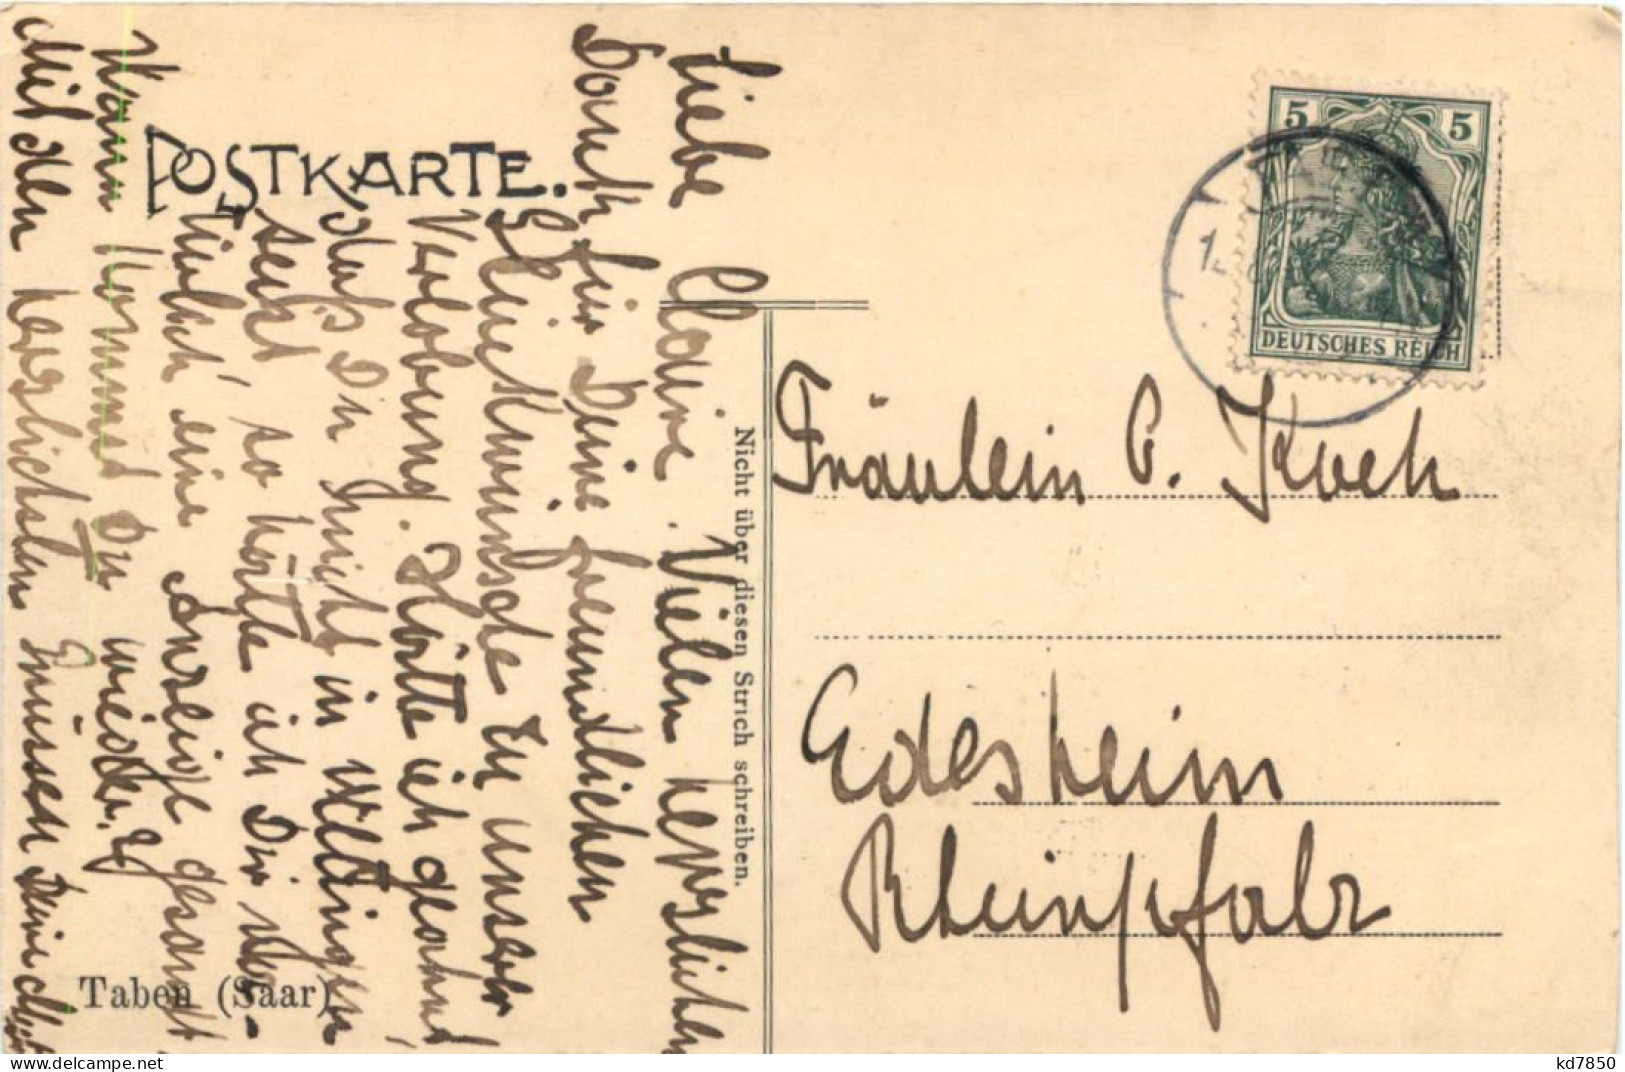 POSTKARTE.
Liebe Claire. Vielen herzlichen
Dank für Deine freundlichen
Glückwünsche zu unserer
Verlobung. Hätte ich geahnt
daß Du nicht in Wellingen
seist, so hätte ich Dir
natürlich eine Anzeige gesandt
Wann kommst Du wieder?
Mit den herzlichsten Grüssen Deine
Nicht über diesen Strich schreiben.
Taben (Saar)
5 5
DEUTSCHES REICH
Fräulein C. Koch
Edesheim
Rheinpfalz
kd7850